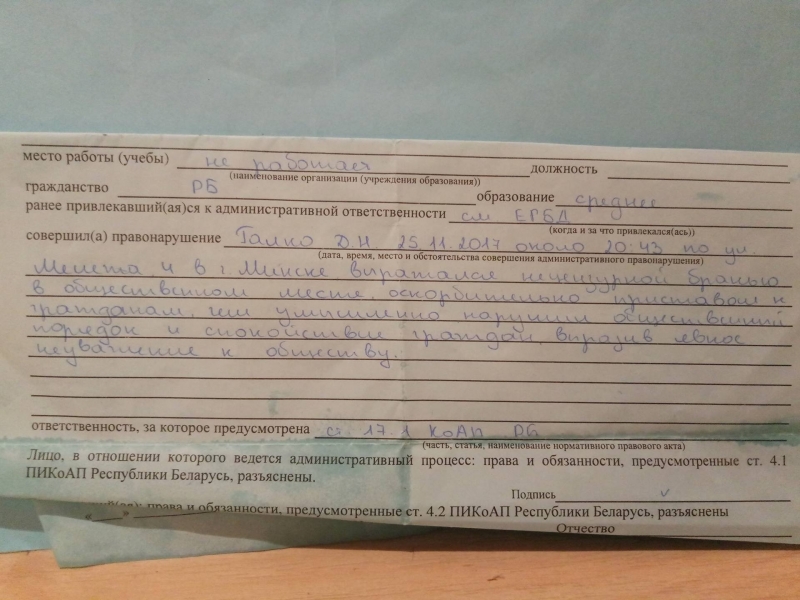 место работы (учебы) не работает должность
(наименование организации (учреждения образования))
гражданство РБ образование среднее
ранее привлекавший(ая)ся к административной ответственности см ЕРБД
(когда и за что привлекался(ась))
совершил(а) правонарушение Галко Д.Н. 25.11.2017 около 20:43 по ул.
(дата, время, место и обстоятельства совершения административного правонарушения)
4 в г. Минске выражался нецензурной бранью
в общественном месте, оскорбительно приставал к
гражданам, чем умышленно нарушил общественный
порядок и спокойствие граждан выразив явное
неуважение к обществу.
ответственность, за которое предусмотрена ст. 17.1 КоАП РБ
(часть, статья, наименование нормативного правового акта)
Лицо, в отношении которого ведется административный процесс: права и обязанности, предусмотренные ст. 4.1
ПИКоАП Республики Беларусь, разъяснены.
Подпись v
права и обязанности, предусмотренные ст. 4.2 ПИКоАП Республики Беларусь, разъяснены
Отчество